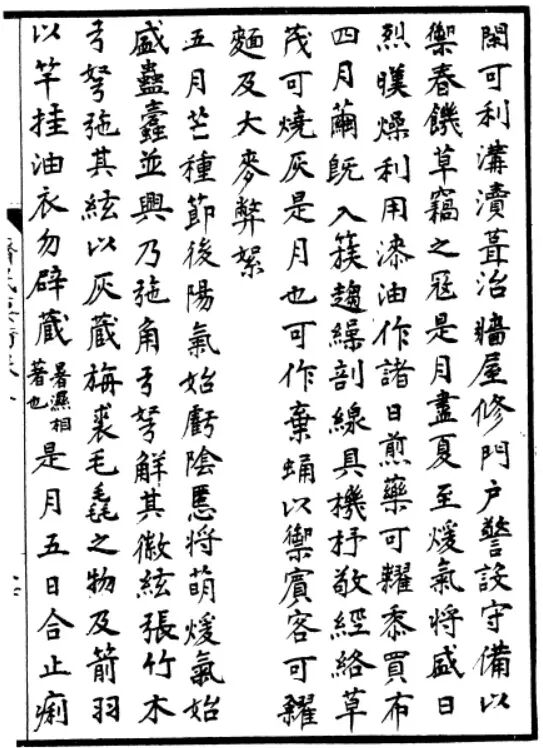 閑可利溝瀆葺治牆屋修門户警設守備以
禦春饑草竊之寇是月盡夏至煖氣將盛日
烈暵燥利用漆油作諸日煎藥可糶黍買布
四月繭既入簇趨繰剖線具機杼敬經絡草
茂可燒灰是月也可作棄蛹以禦賓客可糴
麵及大麥弊絮
五月芒種節後陽氣始虧陰慝將萌煖氣始
盛蠱蠹並興乃弛角弓弩解其徽絃張竹木
弓弩弛其絃以灰藏旃裘毛毳之物及箭羽
以竿挂油衣勿辟藏暑濕相著也是月五日合止痢